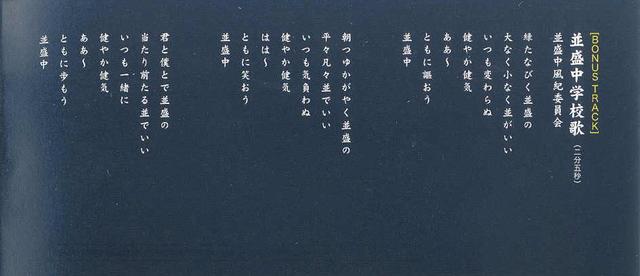 [BONUS TRACK]
並盛中学校歌(二分五秒)
並盛中風紀委員会
緑たなびく並盛の
大なく小なく並がいい
いつも変わらぬ
健やか健気
ああ〜
ともに謳おう
並盛中
朝つゆかがやく並盛の
平々凡々並でいい
いつも気負わぬ
健やか健気
はは〜
ともに笑おう
並盛中
君と僕とで並盛の
当たり前たる並でいい
いつも一緒に
健やか健気
ああ〜
ともに歩もう
並盛中